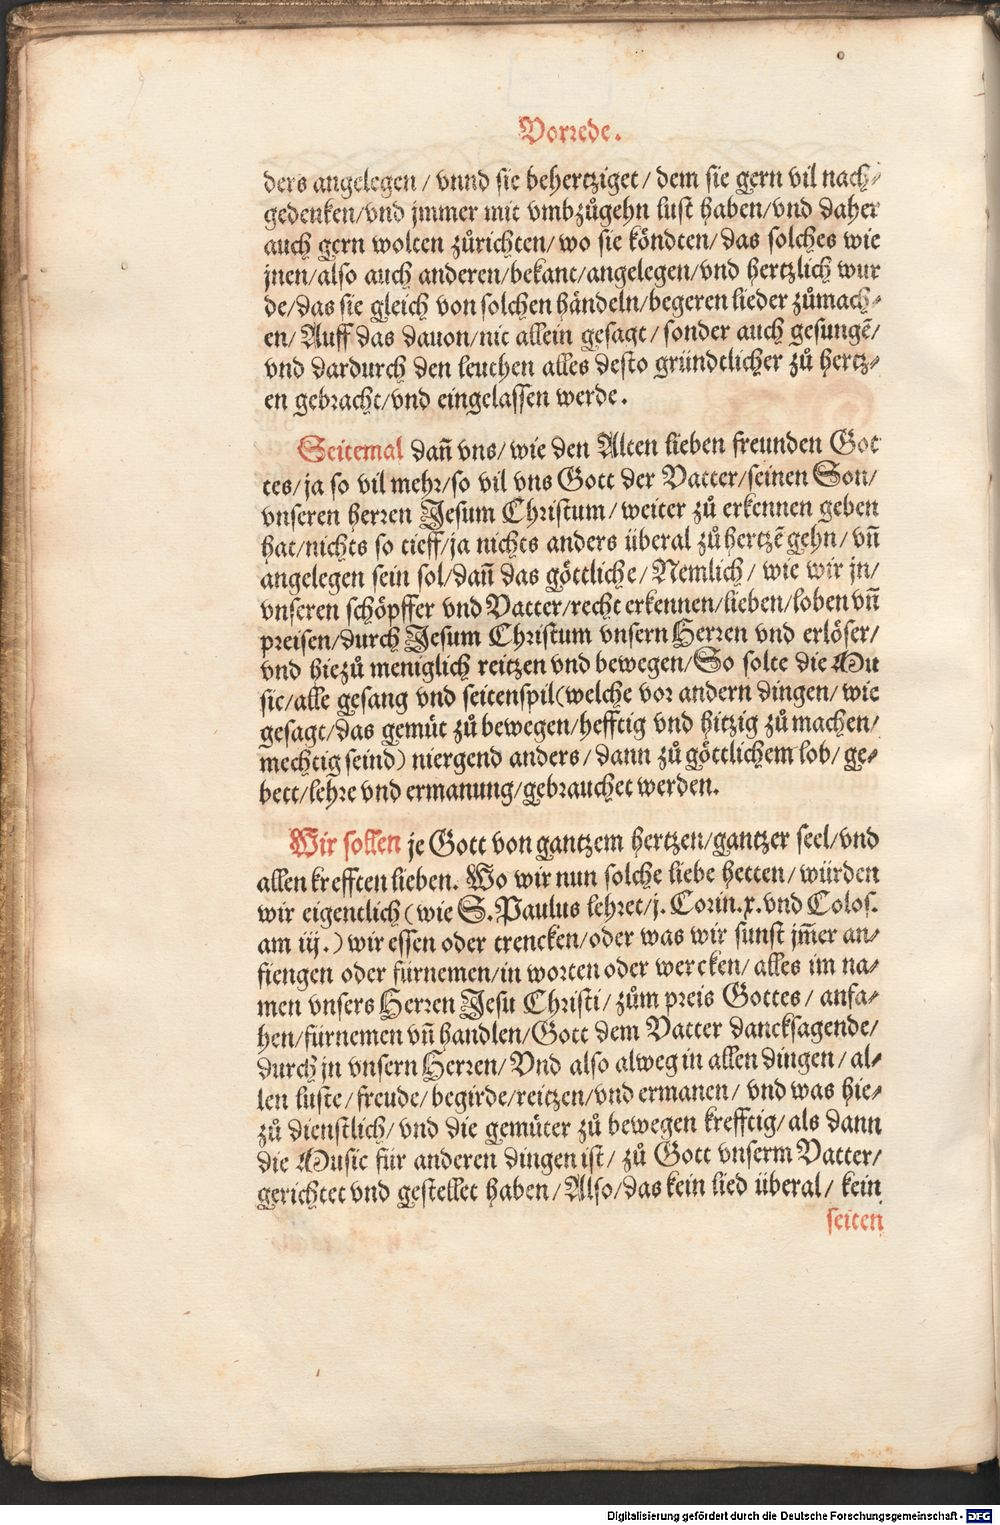 Vorrede.
ders angelegen / vnnd sie behertziget / dem sie gern vil nach⸗
gedenken/vnd jmmer mit vmbzůgehn lust haben/vnd daher
auch gern wolten zůrichten/wo sie köndten/das solches wie
jnen/also auch anderen/bekant/angelegen/vnd hertzlich wur
de/das sie gleich von solchen händeln/begeren lieder zůmach⸗
en/Auff das dauon/nit allein gesagt/sonder auch gesungẽ/
vnd dardurch den leuthen alles desto gründtlicher zů hertz⸗
en gebracht/vnd eingelassen werde.
Seitemal dañ vns/wie den Alten lieben freunden Got
tes/ja so vil mehr/so vil vns Gott der Vatter/seinen Son/
vnseren herren Jesum Christum/weiter zů erkennen geben
hat/nichts so tieff/ja nichts anders überal zů hertzẽ gehn/vñ
angelegen sein sol/dañ das göttliche/Nemlich/wie wir jn/
vnseren schöpffer vnd Vatter/recht erkennen/lieben/loben vñ
preisen/durch Jesum Christum vnsern Herren vnd erlöser/
vnd hiezů meniglich reitzen vnd bewegen/So solte die Mu
sic/alle gesang vnd seitenspil(welche vor andern dingen/wie
gesagt/das gemüt zů bewegen/hefftig vnd hitzig zů machen/
mechtig seind) niergend anders/dann zů göttlichem lob/ge⸗
bett/lehre vnd ermanung/gebrauchet werden.
Wir sollen je Gott von gantzem hertzen/gantzer seel/vnd
allen krefften lieben. Wo wir nun solche liebe hetten/würden
wir eigentlich (wie S. Paulus lehret/j. Corin.x.vnd Colos.
am iij.) wir essen oder trencken/oder was wir sunst jm̃er an⸗
fiengen oder fürnemen/in worten oder wercken/alles im na⸗
men vnsers Herren Jesu Christi/zům preis Gottes/anfa⸗
hen/fürnemen vñ handlen/Gott dem Vatter dancksagende/
durch jn vnsern Herren/Vnd also alweg in allen dingen/al⸗
len luste/freude/begirde/reitzen/vnd ermanen/vnd was hie⸗
zů dienstlich/vnd die gemüter zů bewegen krefftig/als dann
die Music für anderen dingen ist/zů Gott vnserm Vatter/
gerichtet vnd gestellet haben/Also/das kein lied überal/kein
seiten
Digitalisierung gefördert durch die Deutsche Forschungsgemeinschaft - DFG